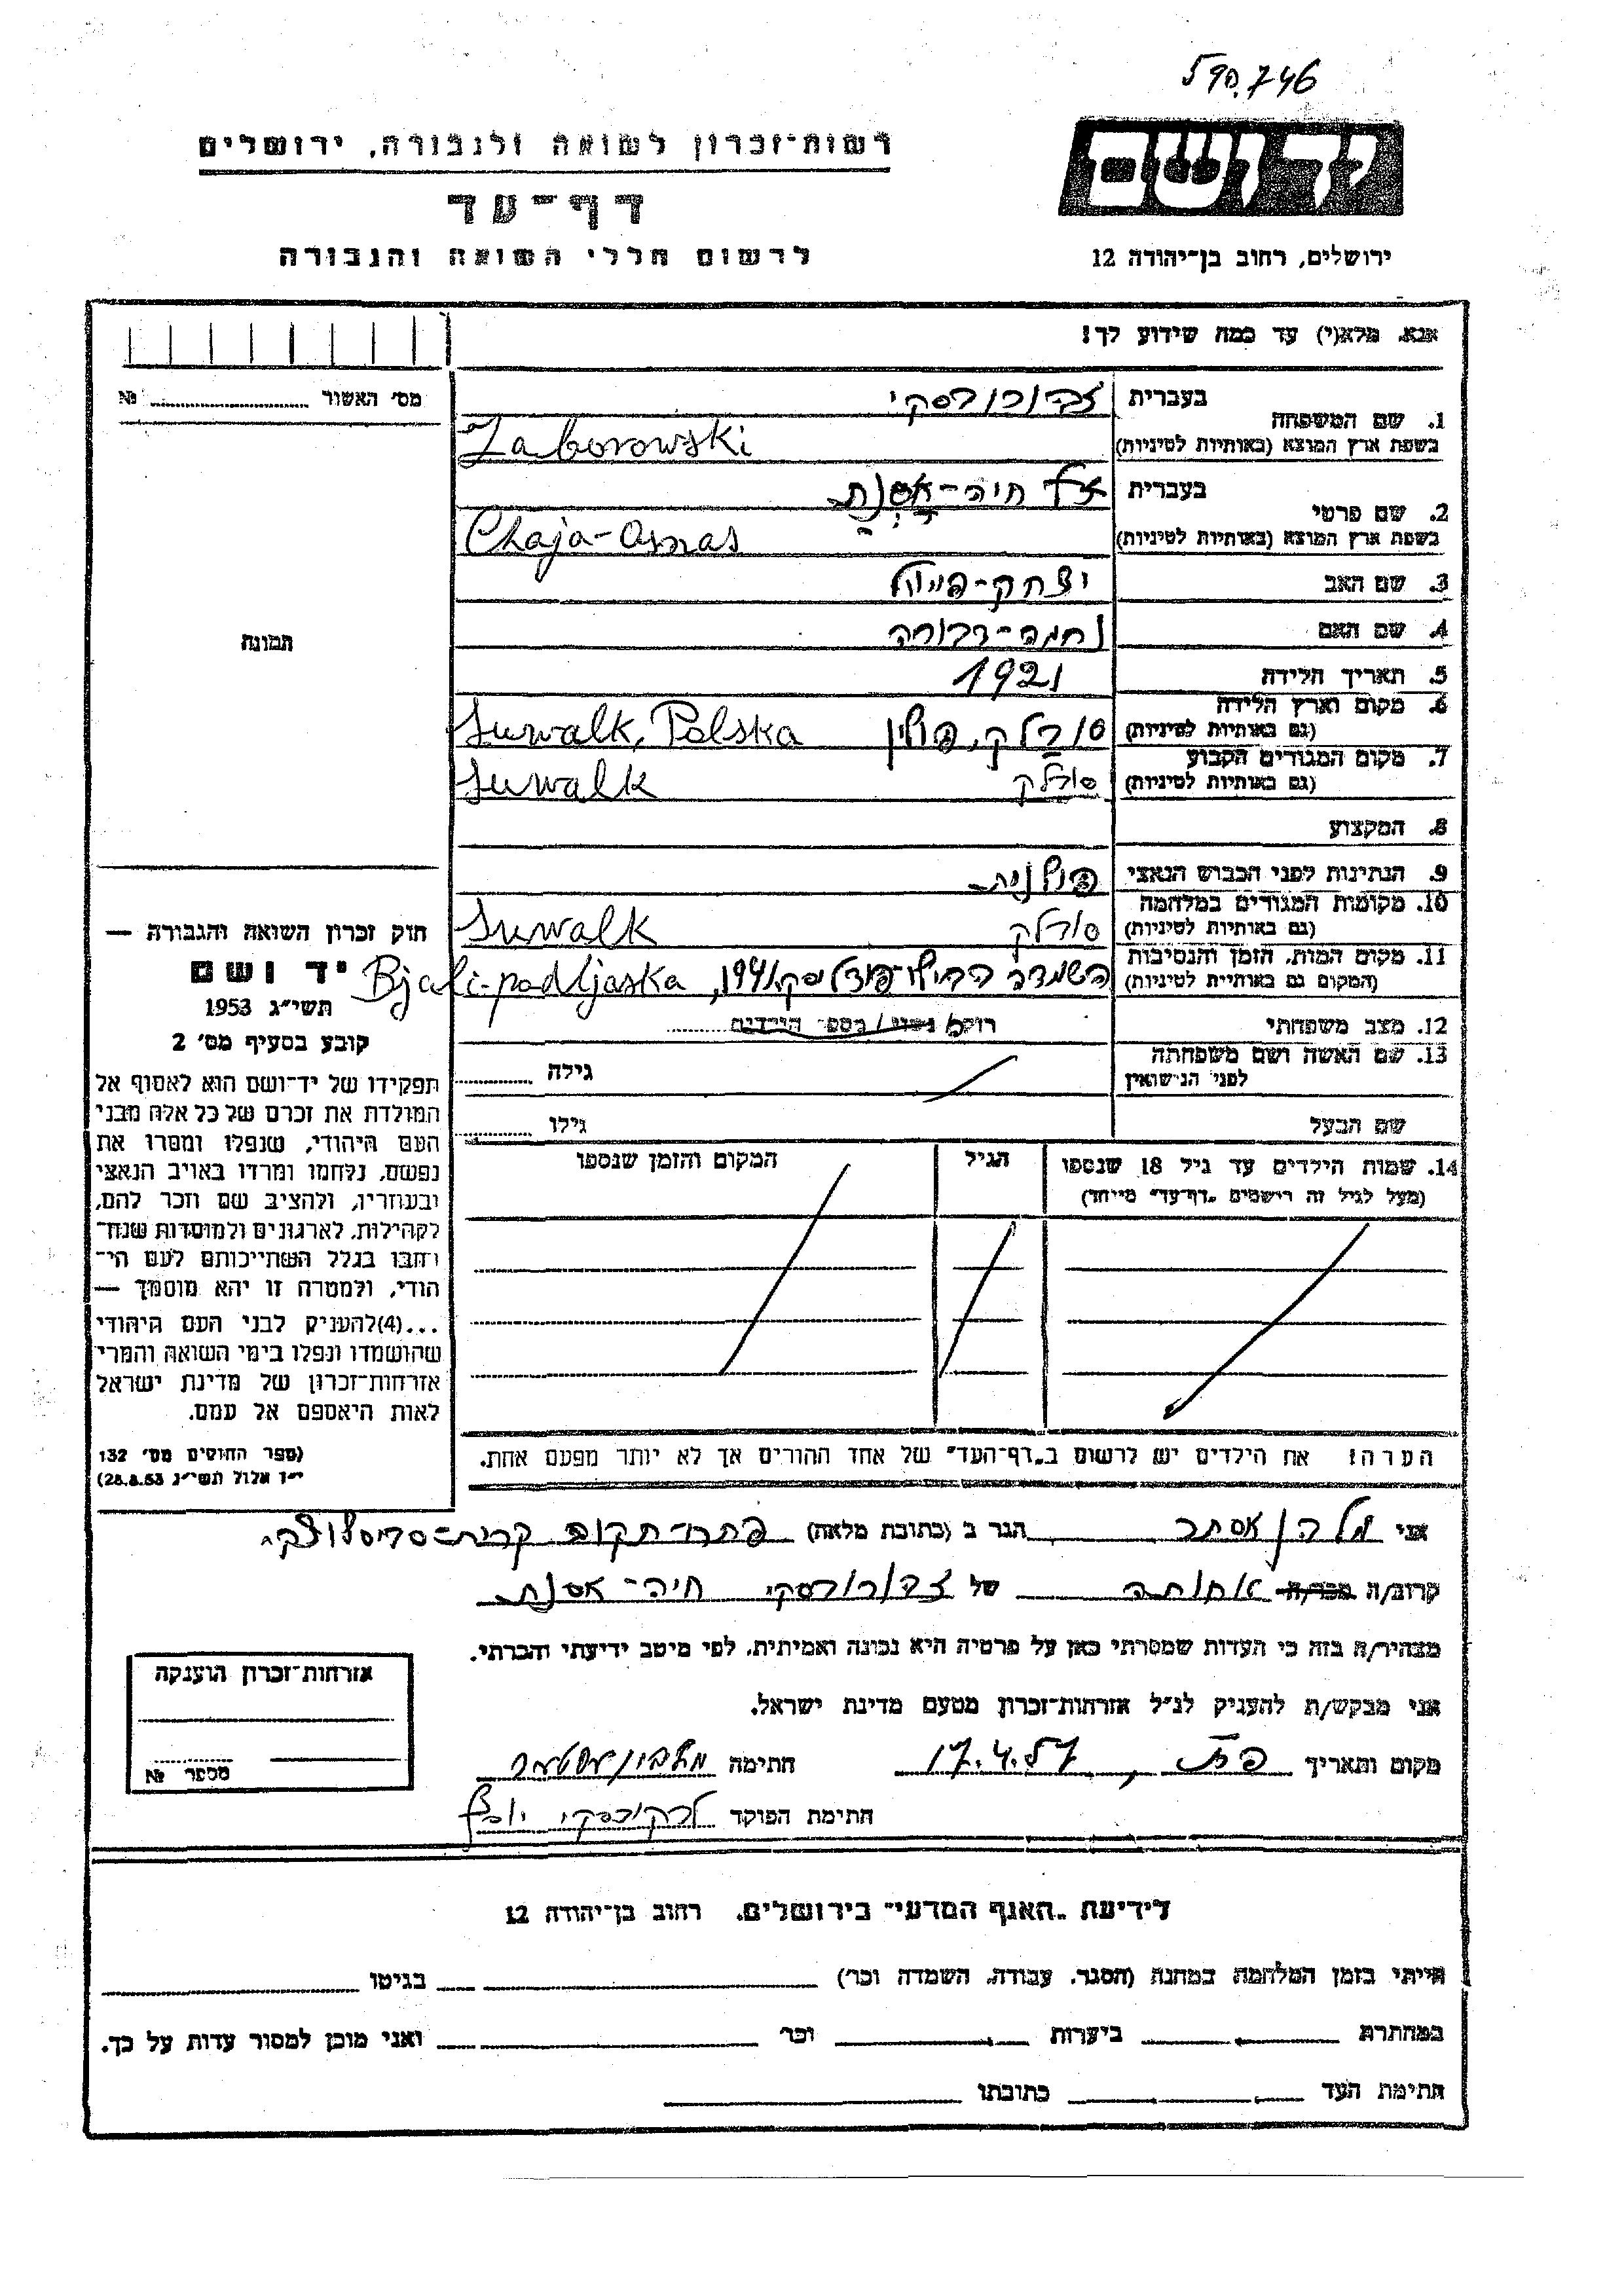 590.746
יד ושם
רשות-זכרון לשואה ולגבורה, ירושלים
דף-עד
לרשום חללי השואה והגבורה
ירושלים, רחוב בן-יהודה 12
אנא, מלא(י) עד כמה שידוע לך!
מס' האשור № 
1. שם המשפחה בעברית זבורובסקי
בשפת ארץ המוצא (באותיות לטיניות) Zaborowski
2. שם פרטי בעברית חיה-אסנת
בשפת ארץ המוצא (באותיות לטיניות) Chaja-Asnas
3. שם האב יצחק-פייוול
4. שם האם נחמה-דבורה
5. תאריך הלידה 1921
6. מקום וארץ הלידה
(גם באותיות לטיניות) סובלק, פולין Suwalk, Polska
7. מקום המגורים הקבוע
(גם באותיות לטיניות) סובלק Suwalk
8. המקצוע
9. הנתינות לפני הכבוש הנאצי פולנית
10. מקומות המגורים במלחמה
(גם באותיות לטיניות) סובלק Suwalk
11. מקום המות, הזמן והנסיבות
(המקום גם באותיות לטיניות) 1941, Bjali-podljaska
12. מצב משפחתי רוק/ה נשוי / מספר הילדים
13. שם האשה ושם משפחתה
לפני הנישואין גילה
שם הבעל גילו
14. שמות הילדים עד גיל 18 שנספו הגיל המקום והזמן שנספו
(מעל לגיל זה רישמים "דף-עד" מיוחד)
הערה! את הילדים יש לרשום ב"דף-העד" של אחד ההורים אך לא יותר מפעם אחת.
תמונה
חוק זכרון השואה והגבורה —
יד ושם
תשי"ג 1953
קובע בסעיף מס' 2
תפקידו של יד-ושם הוא לאסוף אל
המולדת את זכרם של כל אלה מבני
העם היהודי, שנפלו ומסרו את
נפשם, נלחמו ומרדו באויב הנאצי
ובעוזריו, ולהציב שם וזכר להם,
לקהילות, לארגונים ולמוסדות שנח-
רחבו בגלל השתייכותם לעם הי-
הודי, ולמטרה זו יהא מוסמך —
...(4)להעניק לבני העם היהודי
שהושמדו ונפלו בימי השואה והמרי
אזרחות-זכרון של מדינת ישראל
לאות היאספם אל עמם.
(ספר החוקים מס' 132
י"ז אלול תשי"ג 28.8.53)
אני אסתר הגר ב (כתובת מלאה) פתח-תקוה קרית-
קרוב/ה מכר/ה אחותה של זבורובסקי חיה-אסנת
מצהיר/ה בזה כי העדות שמסרתי כאן על פרטיה היא נכונה ואמיתית, לפי מיטב ידיעתי והכרתי.
אני מבקש/ת להעניק לנ"ל אזרחות-זכרון מטעם מדינת ישראל.
מקום ותאריך פ"ת, 17.4.57 חתימה
חתימת הפוקד
אזרחות-זכרון הוענקה
מספר №
לידיעת "האגף המדעי" בירושלים, רחוב בן-יהודה 12
הייתי בזמן המלחמה במחנה (הסגר, עבודה, השמדה וכר') בגיטו
במחתרת ביערות וכר' ואני מוכן למסור עדות על כך.
חתימת העד כתובתו